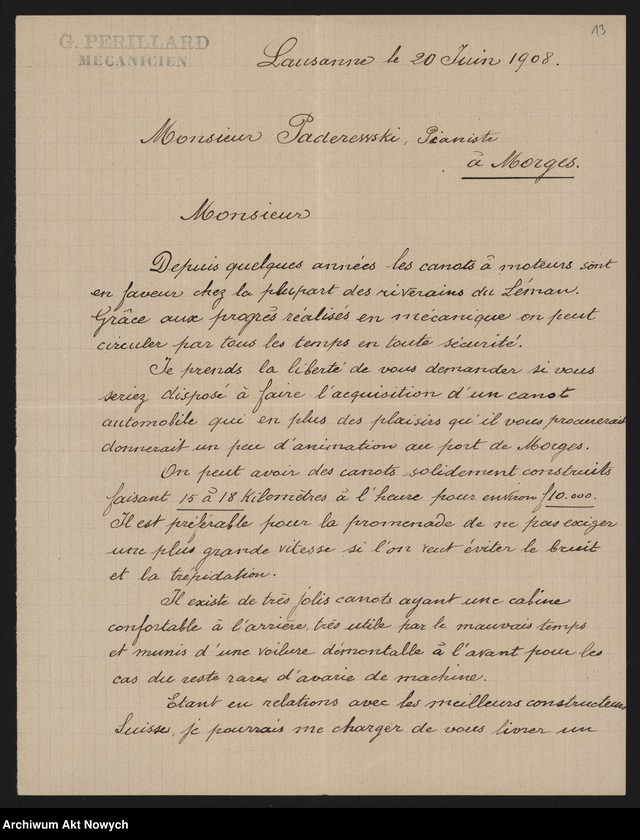 13
G. PERILLARD
MÉCANICIEN
Lausanne le 20 Juin 1908.
Monsieur Paderewski, Pianiste
à Morges.
Monsieur
Depuis quelques années les canots à moteurs sont
en faveur chez la plupart des riverains du Léman.
Grâce aux progrès réalisés en mécanique on peut
circuler par tous les temps en toute sécurité.
Je prends la liberté de vous demander si vous
seriez disposé à faire l'acquisition d'un canot
automobile qui en plus des plaisirs qu'il vous procurerait
donnerait un peu d'animation au port de Morges.
On peut avoir des canots solidement construits
faisant 15 à 18 Kilomètres à l'heure pour environ f 10.000.
Il est préférable pour la promenade de ne pas exiger
une plus grande vitesse si l'on veut éviter le bruit
et la trépidation.
Il existe de très jolis canots ayant une cabine
confortable à l'arrière, très utile par le mauvais temps
et munis d'une voilure démontable à l'avant pour les
cas du reste rares d'avarie de machine.
Etant en relations avec les meilleurs constructeurs
Suisse, je pourrais me charger de vous livrer un
Archiwum Akt Nowych